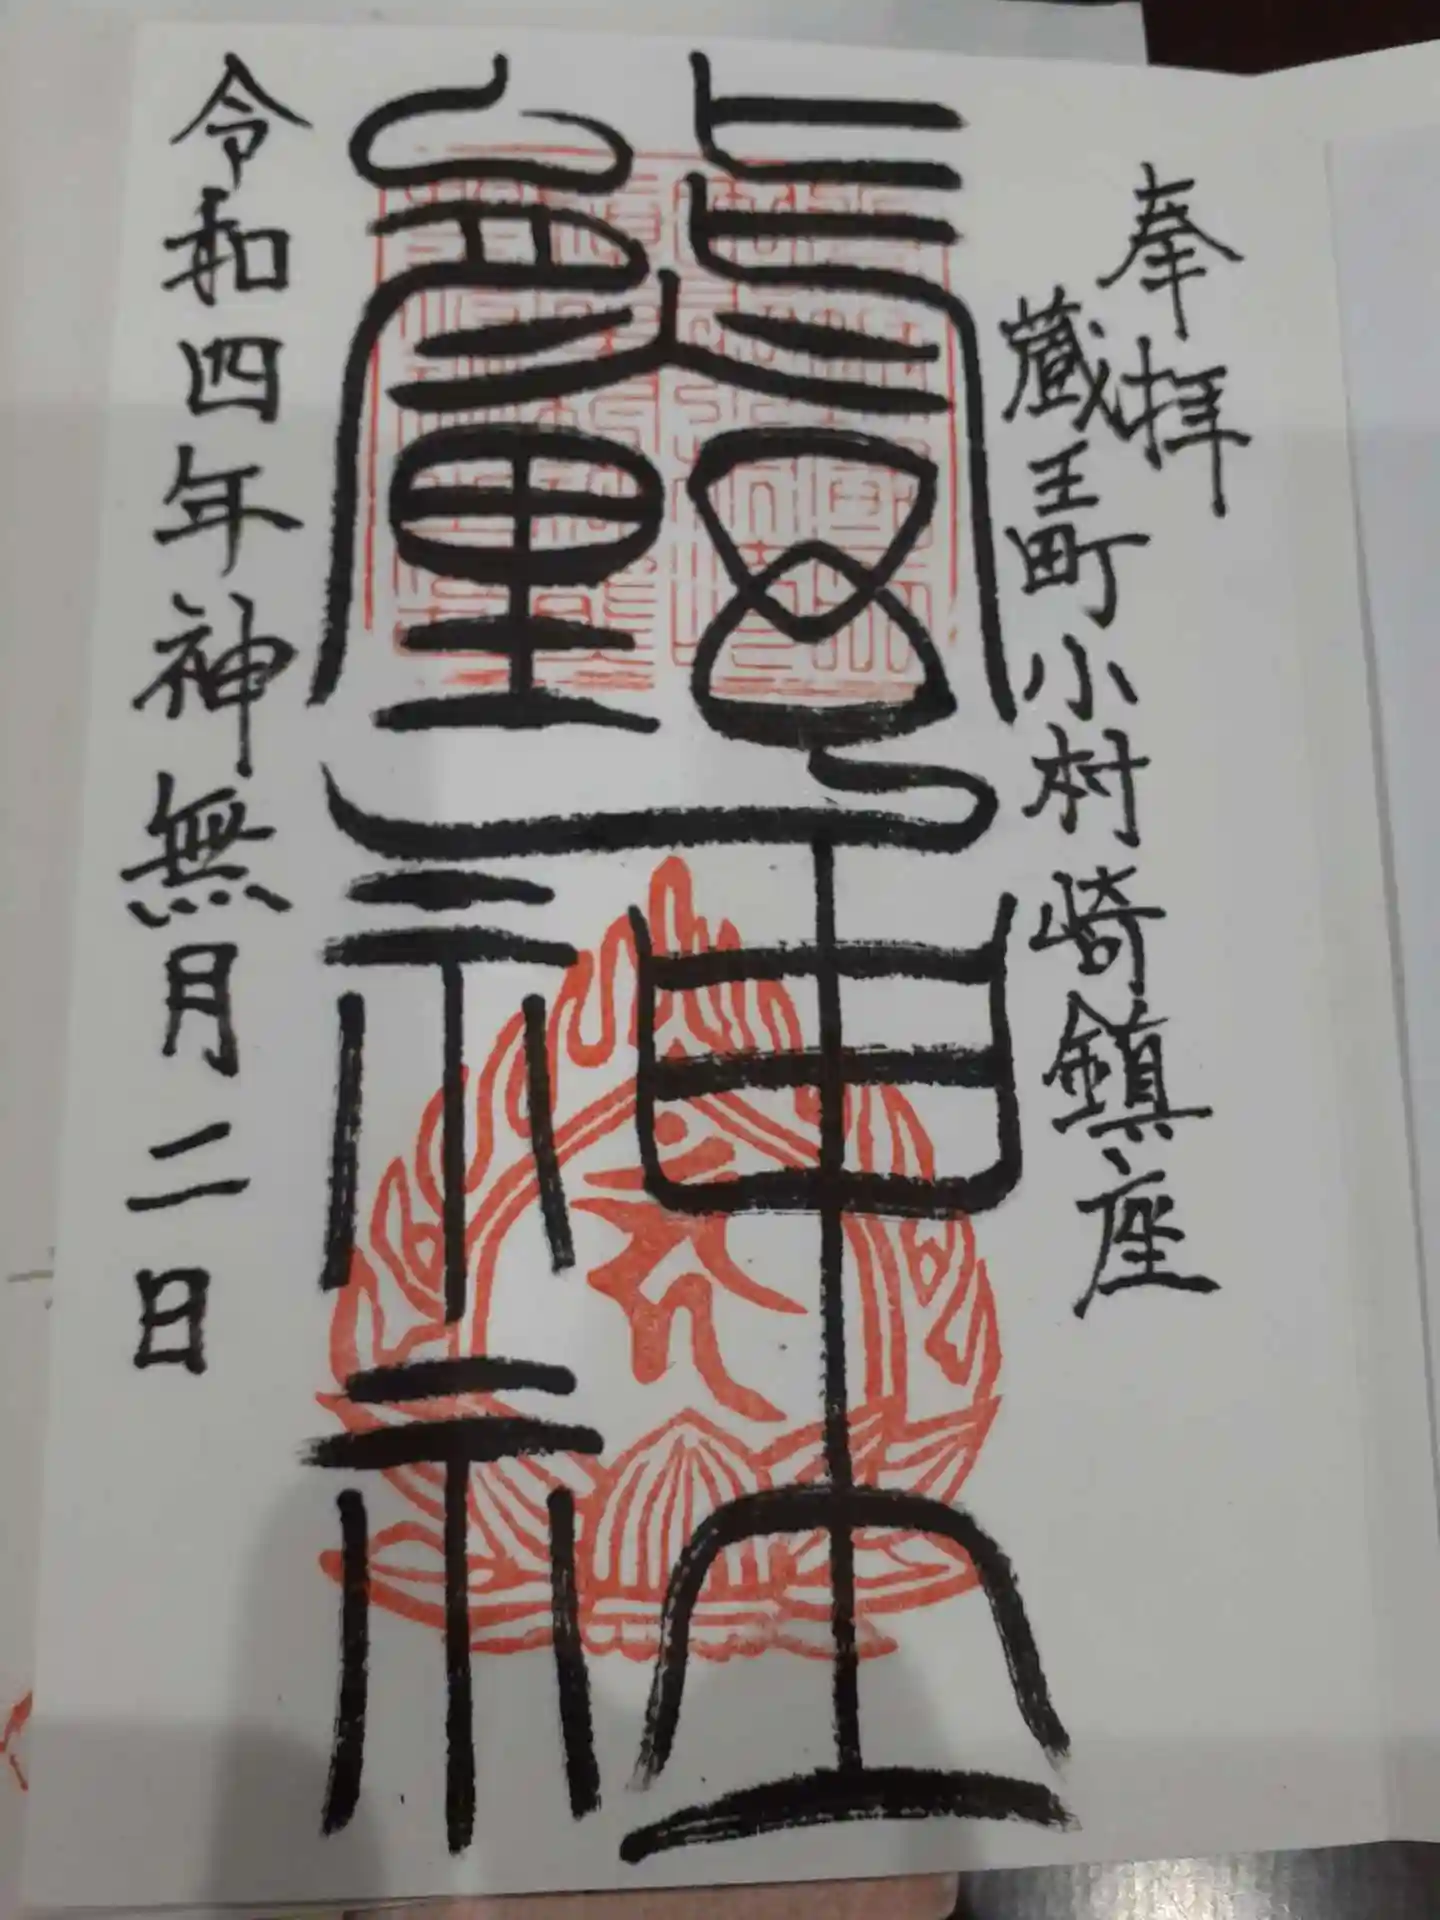 奉拝
蔵王町小村崎鎮座
熊野神社
令和四年神無月二日